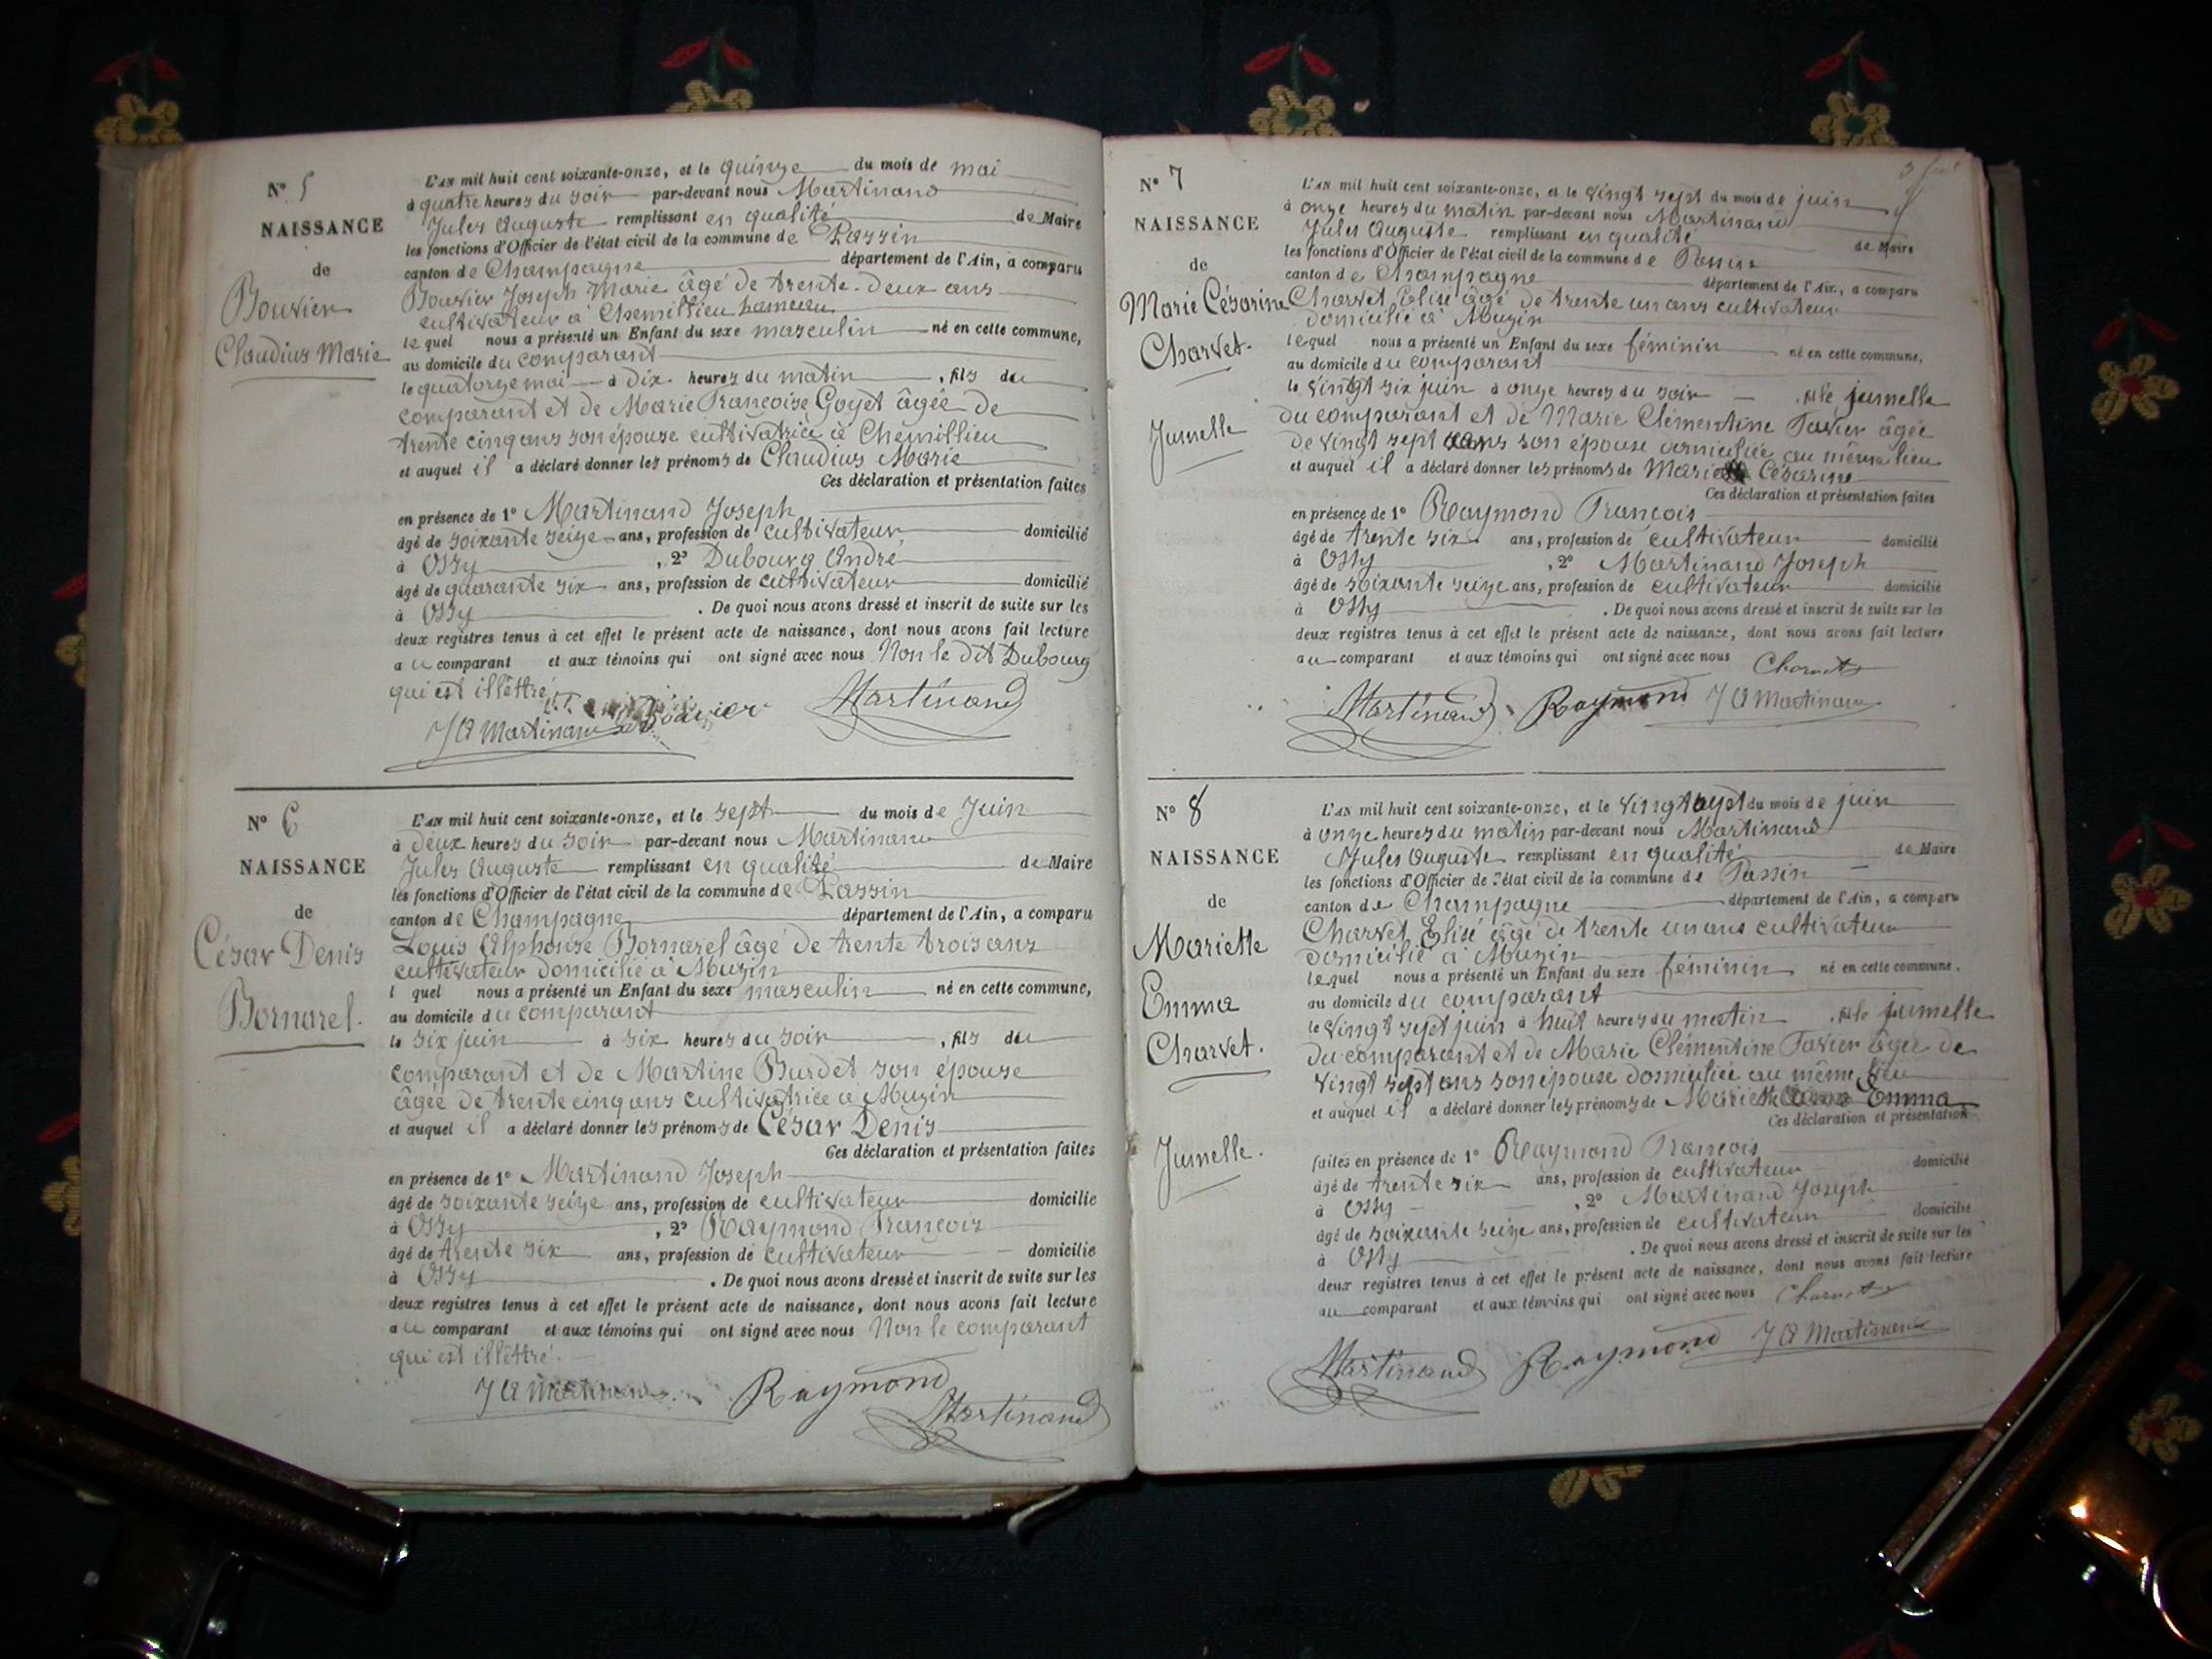 N° 5
NAISSANCE
de
Bouvier
Claudius Marie
L'AN mil huit cent soixante-onze, et le quinze du mois de mai
à quatre heures du soir par-devant nous Martinand
Jules Auguste remplissant en qualité de Maire
les fonctions d'Officier de l'état civil de la commune de Passin
canton de Champagne département de l'Ain, a comparu
Bouvier Joseph Marie âgé de trente-deux ans
cultivateur à Chemillieu hameau
lequel nous a présenté un Enfant du sexe masculin né en cette commune,
au domicile du comparant
le quatorze mai à dix heures du matin, fils du
comparant et de Marie Françoise Goyet âgée de
trente cinq ans son épouse cultivatrice à Chemillieu
et auquel il a déclaré donner les prénoms de Claudius Marie
Ces déclaration et présentation faites
en présence de 1° Martinand Joseph
âgé de soixante seize ans, profession de cultivateur, domicilié
à Ossy, 2° Dubourg André
âgé de quarante six ans, profession de cultivateur domicilié
à Ossy. De quoi nous avons dressé et inscrit de suite sur les
deux registres tenus à cet effet le présent acte de naissance, dont nous avons fait lecture
au comparant et aux témoins qui ont signé avec nous Non le dit Dubourg
qui est illêttré
J A Martinand Bouvier Martinand
N° 6
NAISSANCE
de
César Denis
Bornarel.
L'AN mil huit cent soixante-onze, et le sept du mois de Juin
à deux heures du soir par-devant nous Martinand
Jules Auguste remplissant en qualité de Maire
les fonctions d'Officier de l'état civil de la commune de Passin
canton de Champagne département de l'Ain, a comparu
Louis Alphonse Bornarel âgé de trente trois ans
cultivateur domicilié à Muzin
l quel nous a présenté un Enfant du sexe masculin né en cette commune,
au domicile du comparant
le six juin à six heures du soir, fils du
comparant et de Martine Burdet son épouse
âgée de trente cinq ans cultivatrice à Muzin
et auquel il a déclaré donner les prénoms de César Denis
Ces déclaration et présentation faites
en présence de 1° Martinand Joseph
âgé de soixante seize ans, profession de cultivateur domicilié
à Ossy, 2° Raymond François
âgé de trente six ans, profession de cultivateur domicilié
à Ossy. De quoi nous avons dressé et inscrit de suite sur les
deux registres tenus à cet effet le présent acte de naissance, dont nous avons fait lecture
au comparant et aux témoins qui ont signé avec nous Non le comparant
qui est illêttré.
J A Martinand Raymond
Martinand
N° 7
NAISSANCE
de
Marie Césarine
Charvet.
Jumelle
L'AN mil huit cent soixante-onze, et le vingt sept du mois de juin
à onze heures du matin par-devant nous Martinand
Jules Auguste remplissant en qualité de Maire
les fonctions d'Officier de l'état civil de la commune de Passin
canton de Champagne département de l'Ain, a comparu
Charvet Elisé âgé de trente un ans cultivateur
domicilié à Muzin
lequel nous a présenté un Enfant du sexe féminin né en cette commune,
au domicile du comparant
le vingt six juin à onze heures du soir, fille jumelle
du comparant et de Marie Clémentine Tavier âgée
de vingt sept ans son épouse domiciliée au même lieu
et auquel il a déclaré donner les prénoms de Marie Césarine
Ces déclaration et présentation faites
en présence de 1° Raymond François
âgé de trente six ans, profession de cultivateur domicilié
à Ossy, 2° Martinand Joseph
âgé de soixante seize ans, profession de cultivateur domicilié
à Ossy. De quoi nous avons dressé et inscrit de suite sur les
deux registres tenus à cet effet le présent acte de naissance, dont nous avons fait lecture
au comparant et aux témoins qui ont signé avec nous Charvet
Martinand Raymond J A Martinand
N° 8
NAISSANCE
de
Mariette
Emma
Charvet.
Jumelle.
L'AN mil huit cent soixante-onze, et le vingt sept du mois de juin
à onze heures du matin par-devant nous Martinand
Jules Auguste remplissant en qualité de Maire
les fonctions d'Officier de l'état civil de la commune de Passin
canton de Champagne département de l'Ain, a comparu
Charvet Elisé âgé de trente un ans cultivateur
domicilié à Muzin
lequel nous a présenté un Enfant du sexe féminin né en cette commune,
au domicile du comparant
le vingt sept juin à huit heures du matin, fille jumelle
du comparant et de Marie Clémentine Tavier âgée de
vingt sept ans son épouse domiciliée au même lieu
et auquel il a déclaré donner les prénoms de Mariette Emma
Ces déclaration et présentation
faites en présence de 1° Raymond François
âgé de trente six ans, profession de cultivateur domicilié
à Ossy, 2° Martinand Joseph
âgé de soixante seize ans, profession de cultivateur domicilié
à Ossy. De quoi nous avons dressé et inscrit de suite sur les
deux registres tenus à cet effet le présent acte de naissance, dont nous avons fait lecture
au comparant et aux témoins qui ont signé avec nous Charvet
Martinand Raymond J A Martinand